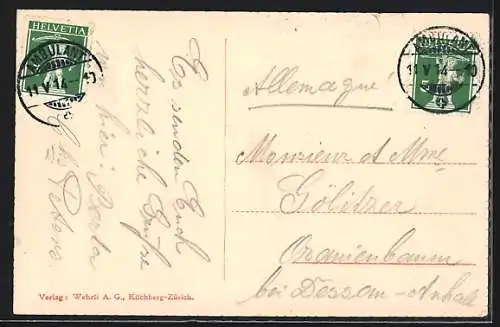 HELVETIA
AMBULANT
11.V.14
AMBULANT
11.V.14
Es senden Euch
herzliche Grüße
von hier: Berta
Allemagne
Monsieur et Mme
Gölitzer
Oranienbaum
bei Dessau-Anhalt
Verlag: Wehrli A. G., Kilchberg-Zürich.